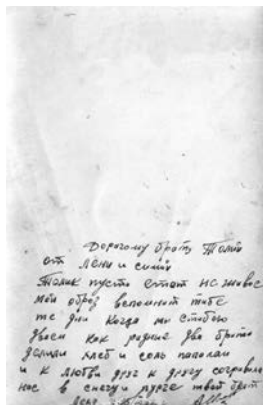 Дорогому брату Толи
от Лени и синий
Толик пусть етот не живос
мой образ вспомнит тибе
те дни когда ми стобою
двоем как родние два брата
делили хлеб и соль пополам
и к любви друг к другу согревала
нас в снегу и пурге твой брат
Леня